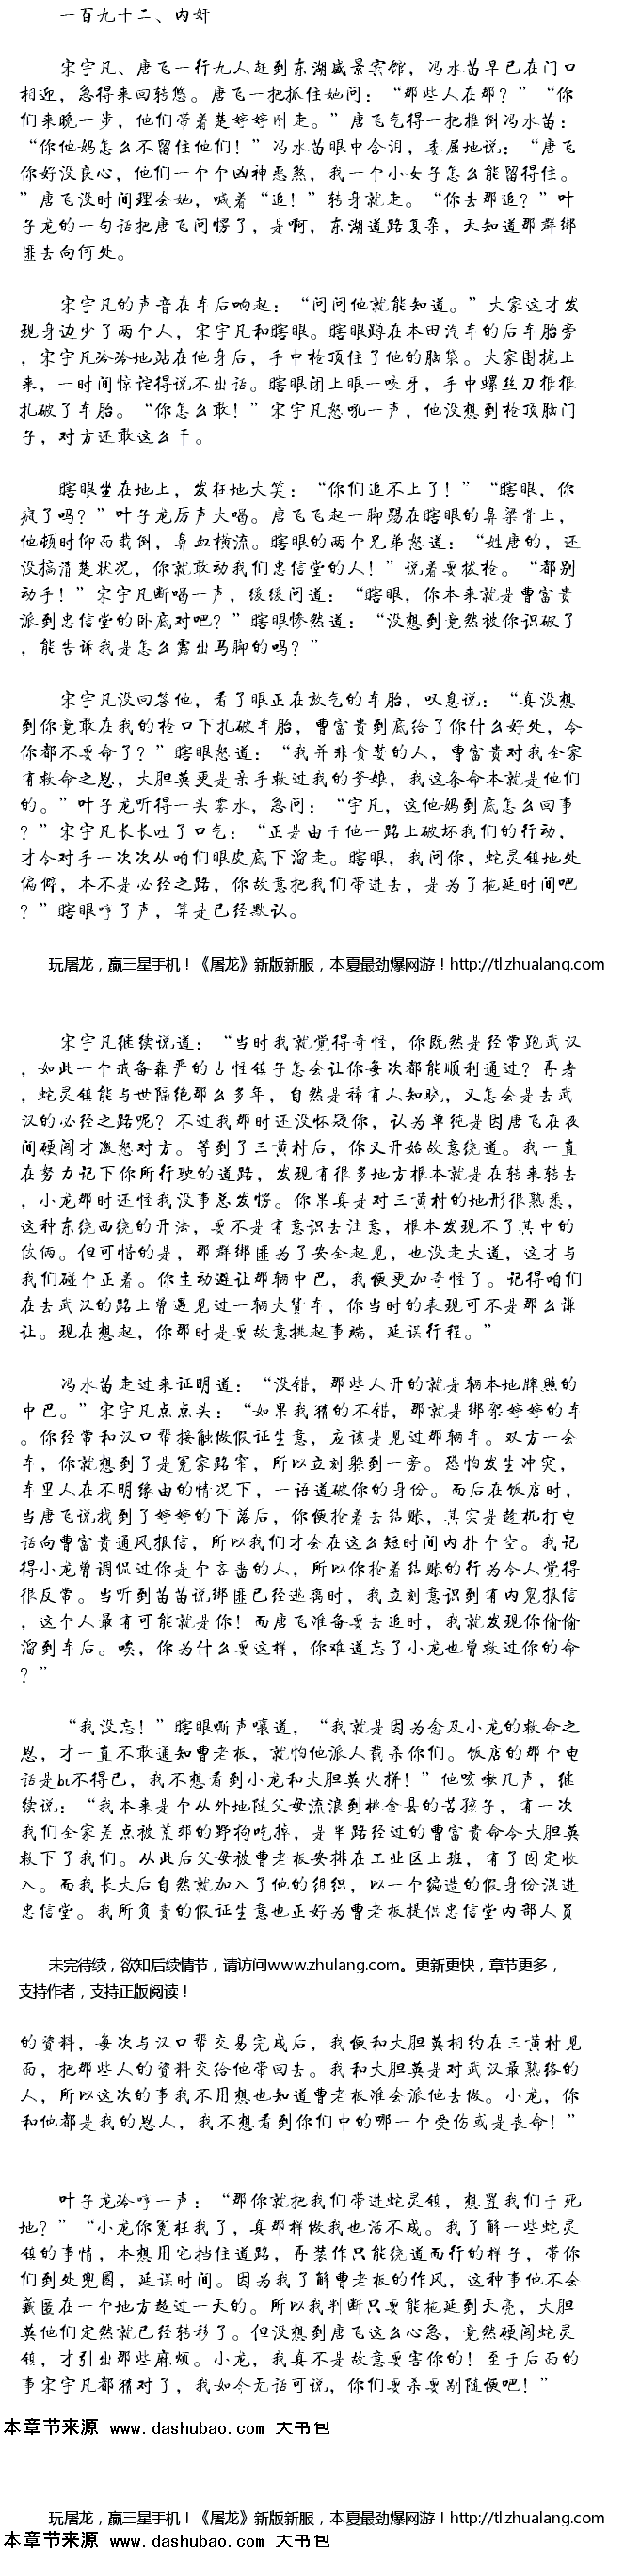 一百九十二、内奸
宋宇凡、唐飞一行九人赶到东湖盛景宾馆，冯水苗早已在门口
相迎，急得来回转悠。唐飞一把抓住她问：“那些人在那？”“你
们来晚一步，他们带着楚婷婷刚走。”唐飞气得一把推倒冯水苗：
“你他妈怎么不留住他们！”冯水苗眼中含泪，委屈地说：“唐飞
你好没良心，他们一个个凶神恶煞，我一个小女子怎么能留得住。
”唐飞没时间理会她，喊着“追！”转身就走。“你去那追？”叶
子龙的一句话把唐飞问愣了，是啊，东湖道路复杂，天知道那群绑
匪去向何处。
宋宇凡的声音在车后响起：“问问他就能知道。”大家这才发
现身边少了两个人，宋宇凡和瞎眼。瞎眼蹲在本田汽车的后车胎旁
，宋宇凡冷冷地站在他身后，手中枪顶住了他的脑袋。大家围拢上
来，一时间惊诧得说不出话。瞎眼闭上眼一咬牙，手中螺丝刀狠狠
扎破了车胎。“你怎么敢！”宋宇凡怒吼一声，他没想到枪顶脑门
子，对方还敢这么干。
瞎眼坐在地上，发狂地大笑：“你们追不上了！”“瞎眼，你
疯了吗？”叶子龙厉声大喝。唐飞飞起一脚踢在瞎眼的鼻梁骨上，
他顿时仰面栽倒，鼻血横流。瞎眼的两个兄弟怒道：“姓唐的，还
没搞清楚状况，你就敢动我们忠信堂的人！”说着要拔枪。“都别
动手！”宋宇凡断喝一声，缓缓问道：“瞎眼，你本来就是曹富贵
派到忠信堂的卧底对吧？”瞎眼惨然道：“没想到竟然被你识破了
，能告诉我是怎么露出马脚的吗？”
宋宇凡没回答他，看了眼正在放气的车胎，叹息说：“真没想
到你竟敢在我的枪口下扎破车胎，曹富贵到底给了你什么好处，令
你都不要命了？”瞎眼怒道：“我并非贪婪的人，曹富贵对我全家
有救命之恩，大胆英更是亲手救过我的爹娘，我这条命本就是他们
的。”叶子龙听得一头雾水，急问：“宇凡，这他妈到底怎么回事
？”宋宇凡长长吐了口气：“正是由于他一路上破坏我们的行动，
才令对手一次次从咱们眼皮底下溜走。瞎眼，我问你，蛇灵镇地处
偏僻，本不是必经之路，你故意把我们带进去，是为了拖延时间吧
？”瞎眼哼了声，算是已经默认。
玩屠龙，赢三星手机！《屠龙》新版新服，本夏最劲爆网游！http://tl.zhualang.com
宋宇凡继续说道：“当时我就觉得奇怪，你既然是经常跑武汉
，如此一个戒备森严的古怪镇子怎会让你每次都能顺利通过？再者
，蛇灵镇能与世隔绝那么多年，自然是稀有人知晓，又怎会是去武
汉的必经之路呢？不过我那时还没怀疑你，认为单纯是因唐飞在夜
间硬闯才激怒对方。等到了三黄村后，你又开始故意绕道。我一直
在努力记下你所行驶的道路，发现有很多地方根本就是在转来转去
，小龙那时还怪我没事总发愣。你果真是对三黄村的地形很熟悉，
这种东绕西绕的开法，要不是有意识去注意，根本发现不了其中的
伎俩。但可惜的是，那群绑匪为了安全起见，也没走大道，这才与
我们碰个正着。你主动避让那辆中巴，我便更加奇怪了。记得咱们
在去武汉的路上曾遇见过一辆大货车，你当时的表现可不是那么谦
让。现在想起，你那时是要故意挑起事端，延误行程。”
冯水苗走过来证明道：“没错，那些人开的就是辆本地牌照的
中巴。”宋宇凡点点头：“如果我猜的不错，那就是绑架婷婷的车
。你经常和汉口帮接触做假证生意，应该是见过那辆车。双方一会
车，你就想到了是冤家路窄，所以立刻躲到一旁。恐怕发生冲突，
车里人在不明缘由的情况下，一语道破你的身份。而后在饭店时，
当唐飞说找到了婷婷的下落后，你便抢着去结账，其实是趁机打电
话向曹富贵通风报信，所以我们才会在这么短时间内扑个空。我记
得小龙曾调侃过你是个吝啬的人，所以你抢着结账的行为令人觉得
很反常。当听到苗苗说绑匪已经逃离时，我立刻意识到有内鬼报信
，这个人最有可能就是你！而唐飞准备要去追时，我就发现你偷偷
溜到车后。唉，你为什么要这样，你难道忘了小龙也曾救过你的命
？”
“我没忘！”瞎眼嘶声嚷道，“我就是因为念及小龙的救命之
恩，才一直不敢通知曹老板，就怕他派人截杀你们。饭店的那个电
话是bi不得已，我不想看到小龙和大胆英火拼！”他咳嗽几声，继
续说：“我本来是个从外地随父母流浪到桃金县的苦孩子，有一次
我们全家差点被荒郊的野狗吃掉，是半路经过的曹富贵命令大胆英
救下了我们。从此后父母被曹老板安排在工业区上班，有了固定收
入。而我长大后自然就加入了他的组织，以一个编造的假身份混进
忠信堂。我所负责的假证生意也正好为曹老板提供忠信堂内部人员
未完待续，欲知后续情节，请访问www.zhulang.com。更新更快，章节更多，
支持作者，支持正版阅读！
的资料，每次与汉口帮交易完成后，我便和大胆英相约在三黄村见
面，把那些人的资料交给他带回去。我和大胆英是对武汉最熟络的
人，所以这次的事我不用想也知道曹老板准会派他去做。小龙，你
和他都是我的恩人，我不想看到你们中的哪一个受伤或是丧命！”
叶子龙冷哼一声：“那你就把我们带进蛇灵镇，想置我们于死
地？”“小龙你冤枉我了，真那样做我也活不成。我了解一些蛇灵
镇的事情，本想用它挡住道路，再装作只能绕道而行的样子，带你
们到处兜圈，延误时间。因为我了解曹老板的作风，这种事他不会
藏匿在一个地方超过一天的。所以我判断只要能拖延到天亮，大胆
英他们定然就已经转移了。但没想到唐飞这么心急，竟然硬闯蛇灵
镇，才引出那些麻烦。小龙，我真不是故意要害你的！至于后面的
事宋宇凡都猜对了，我如今无话可说，你们要杀要剐随便吧！”
本章节来源 www.dashubao.com 大书包
玩屠龙，赢三星手机！《屠龙》新版新服，本夏最劲爆网游！http://tl.zhualang.com
本章节来源 www.dashubao.com 大书包